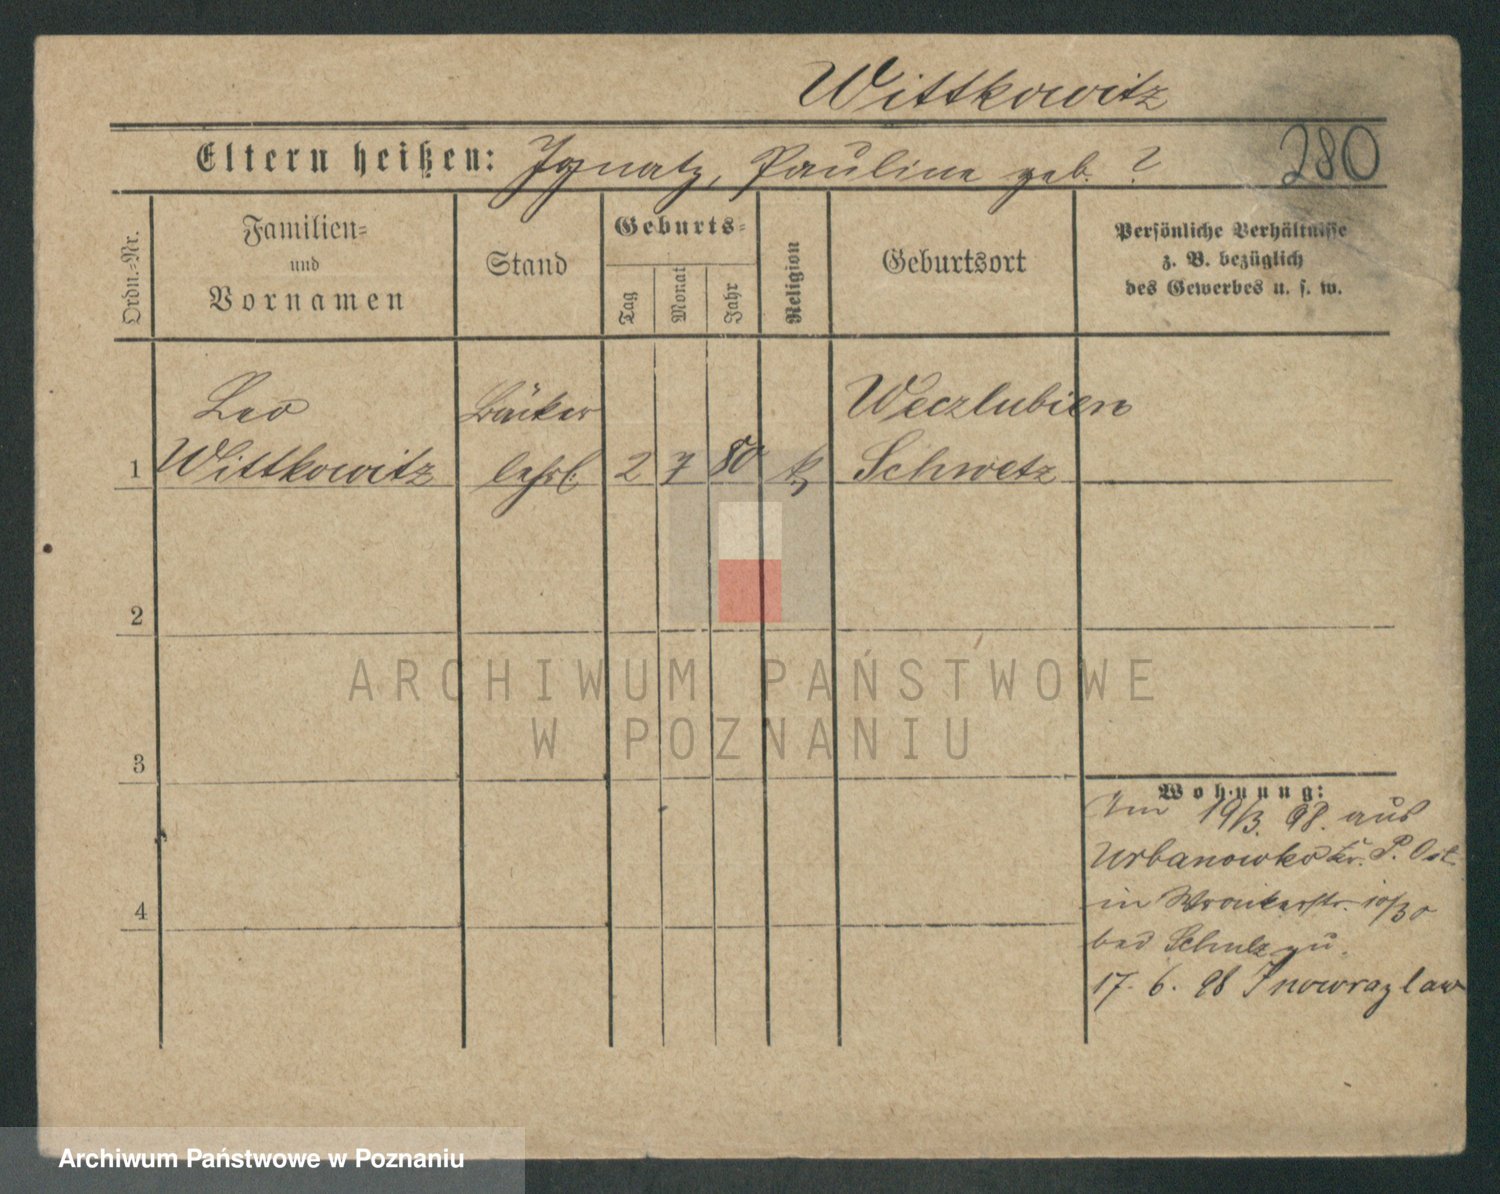 Wittkowitz
280
Eltern heißen: Ignatz, Pauline geb. ?
Ordn.-Nr.
Familien-
und
Vornamen
Stand
Geburts-
Tag
Monat
Jahr
Religion
Geburtsort
Persönliche Verhältnisse
z. B. bezüglich
des Gewerbes u. s. w.
Leo Bäcker Weczlubien
1 Wittkowitz lehrl. 2 7 80 k Schwetz
2
ARCHIWUM PAŃSTWOWE
W POZNANIU
3
Wohnung:
Am 19/3. 98. aus
Urbanowko Kr. P. Ost
in Wronkerstr. 10/30
bei Schulz zu.
17. 6. 98 Inowrazlaw
4
Archiwum Państwowe w Poznaniu